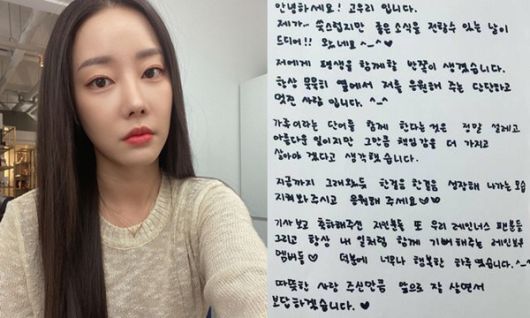 안녕하세요! 고우리 입니다.
제가.. 쑥스럽지만 좋은 소식을 전할수 있는 날이
드디어!! 왔네요 ^_^ ♥
저에게 평생을 함께할 반쪽이 생겼습니다.
항상 묵묵히 옆에서 저를 응원해 주는 단단하고
멋진 사람 입니다. ^-^
가족이라는 단어를 함께 한다는것은 정말 설레고
아름다운 일이지만 그만큼 책임감을 더 가지고
살아야 겠다고 생각했습니다.
지금까지 그래왔듯 한걸음 한걸음 성장해 나가는 모습
지켜봐주시고 응원해 주세요♡♡
기사 보고 축하해주신 지인분들 또 우리 레인너스 팬분들
그리고 항상 내 일처럼 함께 기뻐해주는 레인보우
멤버들♡ 덕분에 너무나 행복한 하루 였습니다.^_^
따뜻한 사랑 주신만큼 앞으로 잘 살면서
보답하겠습니다. ♥